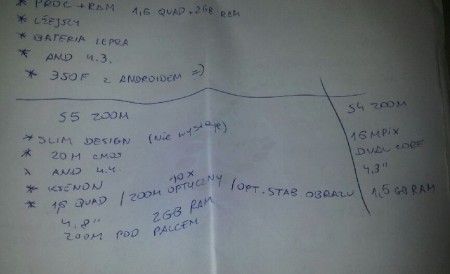 * PROC + RAM 1,6 QUAD + 2GB RAM
* LŻEJSZY
* BATERIA LEPSZA
* AND 4.3.
* 350F Z ANDROIDEM =)
S5 ZOOM
* SLIM DESIGN (nie
* 20M CMOS
* AND 4.4.
* KSENON
* 1,6 QUAD / ZOOM OPTYCZNY 10x / OPT. STAB. OBRAZU
4,8" 2GB RAM
ZOOM POD PALCEM
S4 ZOOM
16MPIX
DUAL CORE
4,3"
1,5 GB RAM